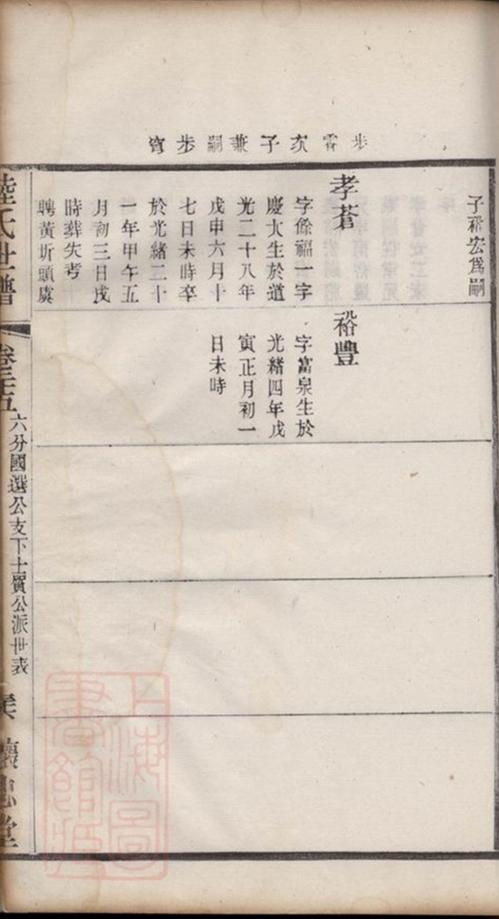 步霄次子兼嗣步穹
子裕宏為嗣
孝蒼
字餘福一字
慶大生於道
光二十八年
戊申六月十
七日未時卒
於光緒二十
一年甲午五
月初三日戌
時葬失考
聘黃圻頭虞
裕豐
字富泉生於
光緒四年戊
寅正月初一
日未時
陸氏世譜
六分國選公支下士賓公派世表
懷忠堂
上海圖書館藏